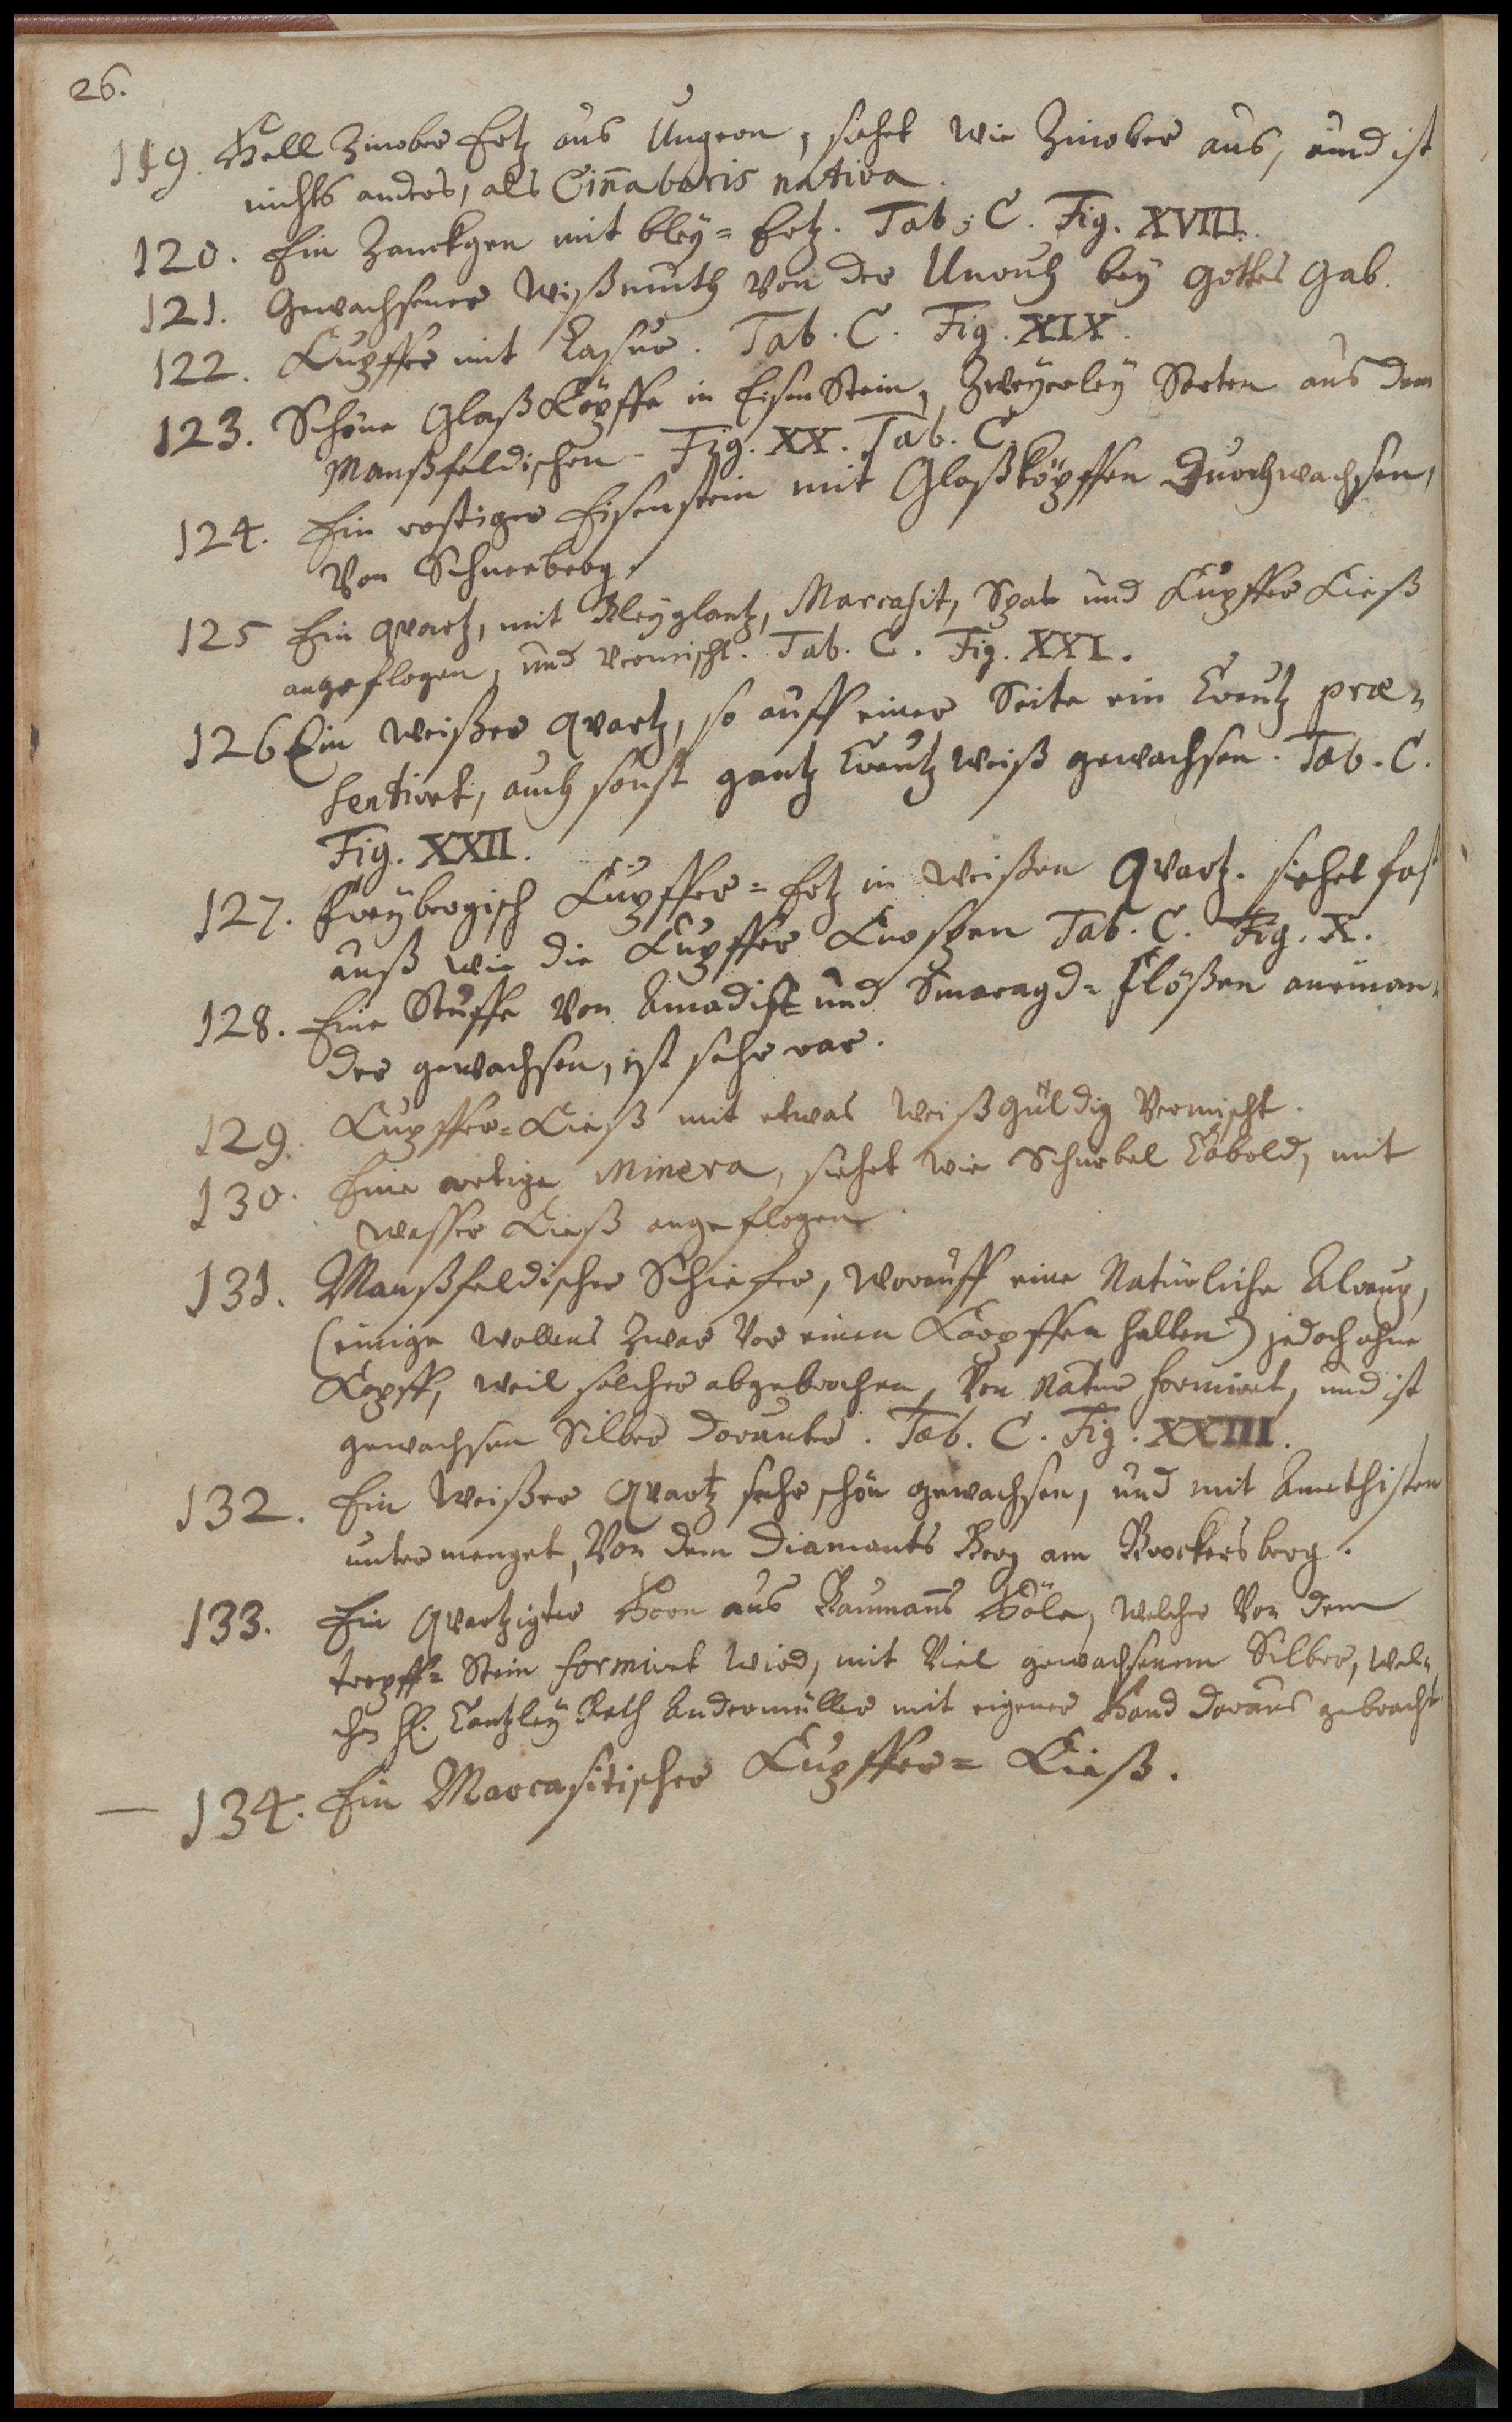 26.
119. Hell Zinober Ertz aus Ungern, siehet wie Zinober aus, und ist
nichts anders, als Cin̄abaris nativa.
120. Ein Zanckgen mit bley=Ertz. Tab. C. Fig. XVIII.
121. Gewachsener Wißmuth von der Unruh bey Gottes Gab.
122. Kupffer mit Lasur. Tab. C. Fig. XIX.
123. Schöne Glaß Köpffe in Eisen Stein, Zweyerley Sorten aus dem
Manßfeldischen. Fig. XX. Tab. C.
124. Ein rostiger Eisenstein mit Glaßköpffen durchwachsen,
von Schneeberg.
125 Ein qvartz, mit Bleyglantz, Marcasit, Spat und Kupffer Kieß
angeflogen, und vermischt. Tab. C. Fig. XXI.
126 Ein weißer qvartz, so auff einer Seite ein Creutz præ=
sentiret, auch sonst gantz Creutz weiß gewachsen. Tab. C.
Fig. XXII.
127. Freybergisch Kupffer=Ertz in weißen Qvartz. siehet fast
auß wie die Kupffer Knospen Tab. C. Fig. X.
128. Eine Stuffe von Amadist und Smaragd=Flößen aneinan=
der gewachsen, ist sehr rar.
129. Kupffer=Kieß mit etwas weißgüldig vermischt.
130. Eine artige Minera, siehet wie Schnebel Cobold, mit
wasser Kieß angeflogen.
131. Manßfeldischer Schiefer, worauff eine Natürliche Alraup,
(einige wollens zwar vor einen Karpffen halten) jedoch ohne
Kopff, weil solcher abgebrochen, von Natur formiret, und ist
gewachsen Silber darunter. Tab. C. Fig. XXIII.
132. Ein weißer Qvartz sehr schön gewachsen, und mit Amethisten
unter menget, von dem Diamants Berg am Brockersberg.
133. Ein qvartzigter Horn aus Baumans̄ Höle, welcher von dem
tropff=Stein formiret wird, mit viel gewachsenem Silber, wel=
ches H. Cantzley Rath Andermüller mit eigener Hand daraus gebracht.
134. Ein Marcasitischer Kupffer=Kieß.